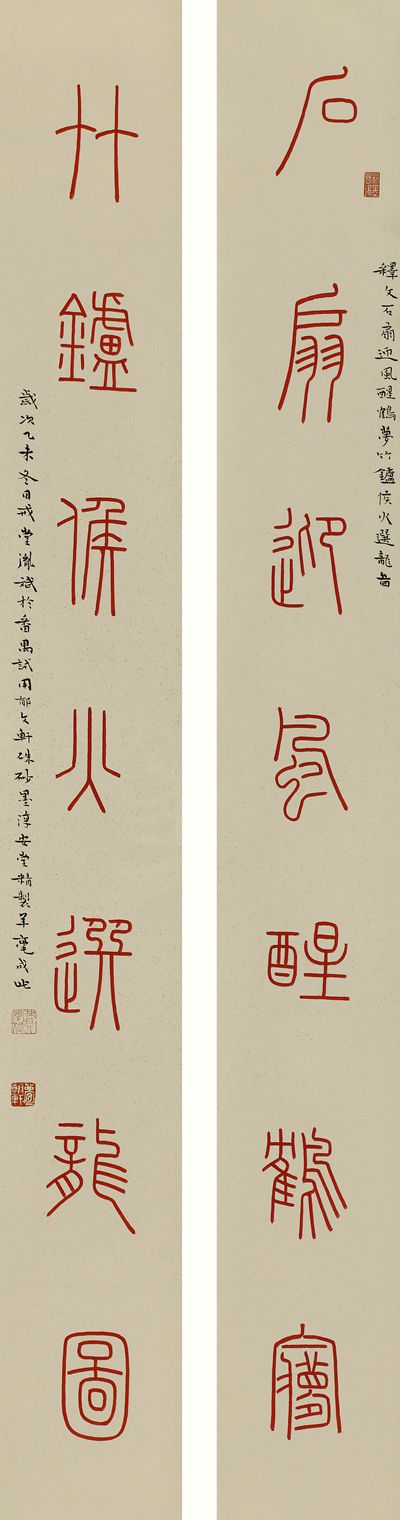 石扇迎風醒鶴夢
釋文石扇迎風醒鶴夢竹鑪候火選龍啚
竹鑪候火選龍圖
歲次乙未冬日戒堂 於番禺試用郁文軒硃砂墨淳安堂精製羊毫成此